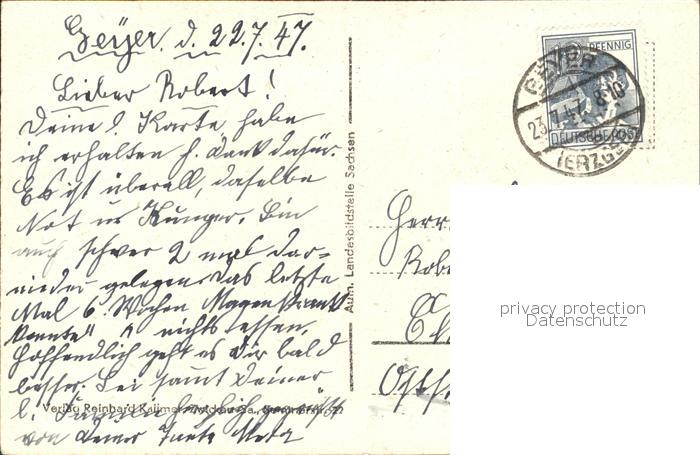 Geyer. d. 22.7.47.
Lieber Robert!
Deine l. Karte habe
ich erhalten h. Dank dafür.
Es ist überall, dasselbe
Not u. Hunger. Bin
auch schwer 2 mal dar=
nieder gelegen. Das letzte
Mal 6 Wochen Magenkrank
konnte nichts essen.
Hoffentlich geht es Dir bald
besser. Sei samt Deiner
l. Familie herzlich gegrüßt
von Deiner Tante
Verlag Reinhard
Aufn. Landesbildstelle Sachsen
PFENNIG
DEUTSCHE POST
GEYER
23.7.47. 8-10
(ERZGEB)
Herrn
Robe
Ostf
privacy protection
Datenschutz